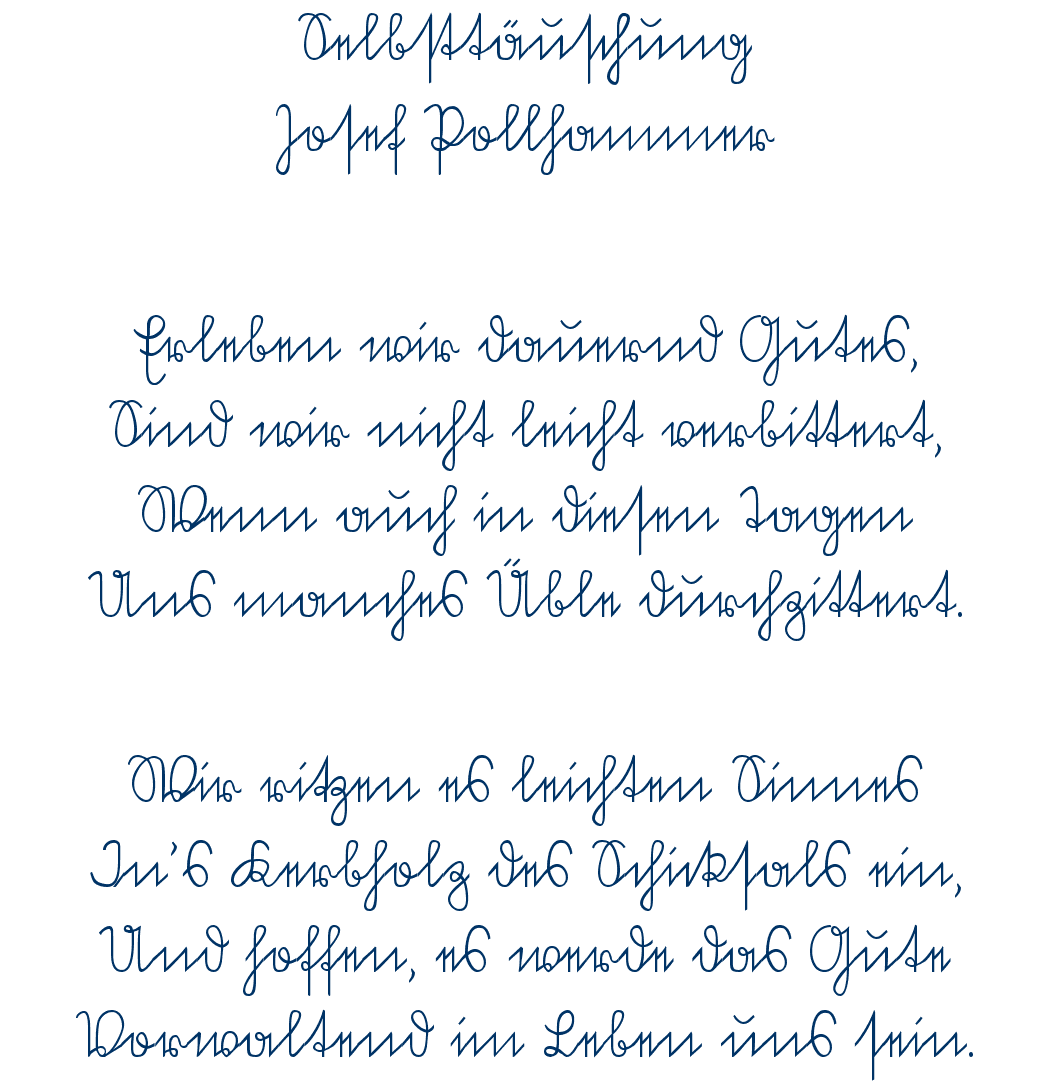 Selbsttäuschung
Josef Pollhammer
Erleben wir dauernd Gutes,
Sind wir nicht leicht verbittert,
Wenn auch in diesen Tagen
Uns manches Üble durchzittert.
Wir ritzen es leichten Sinnes
In's Kerbholz des Schicksals ein,
Und hoffen, es werde das Gute
Vorwaltend im Leben uns sein.